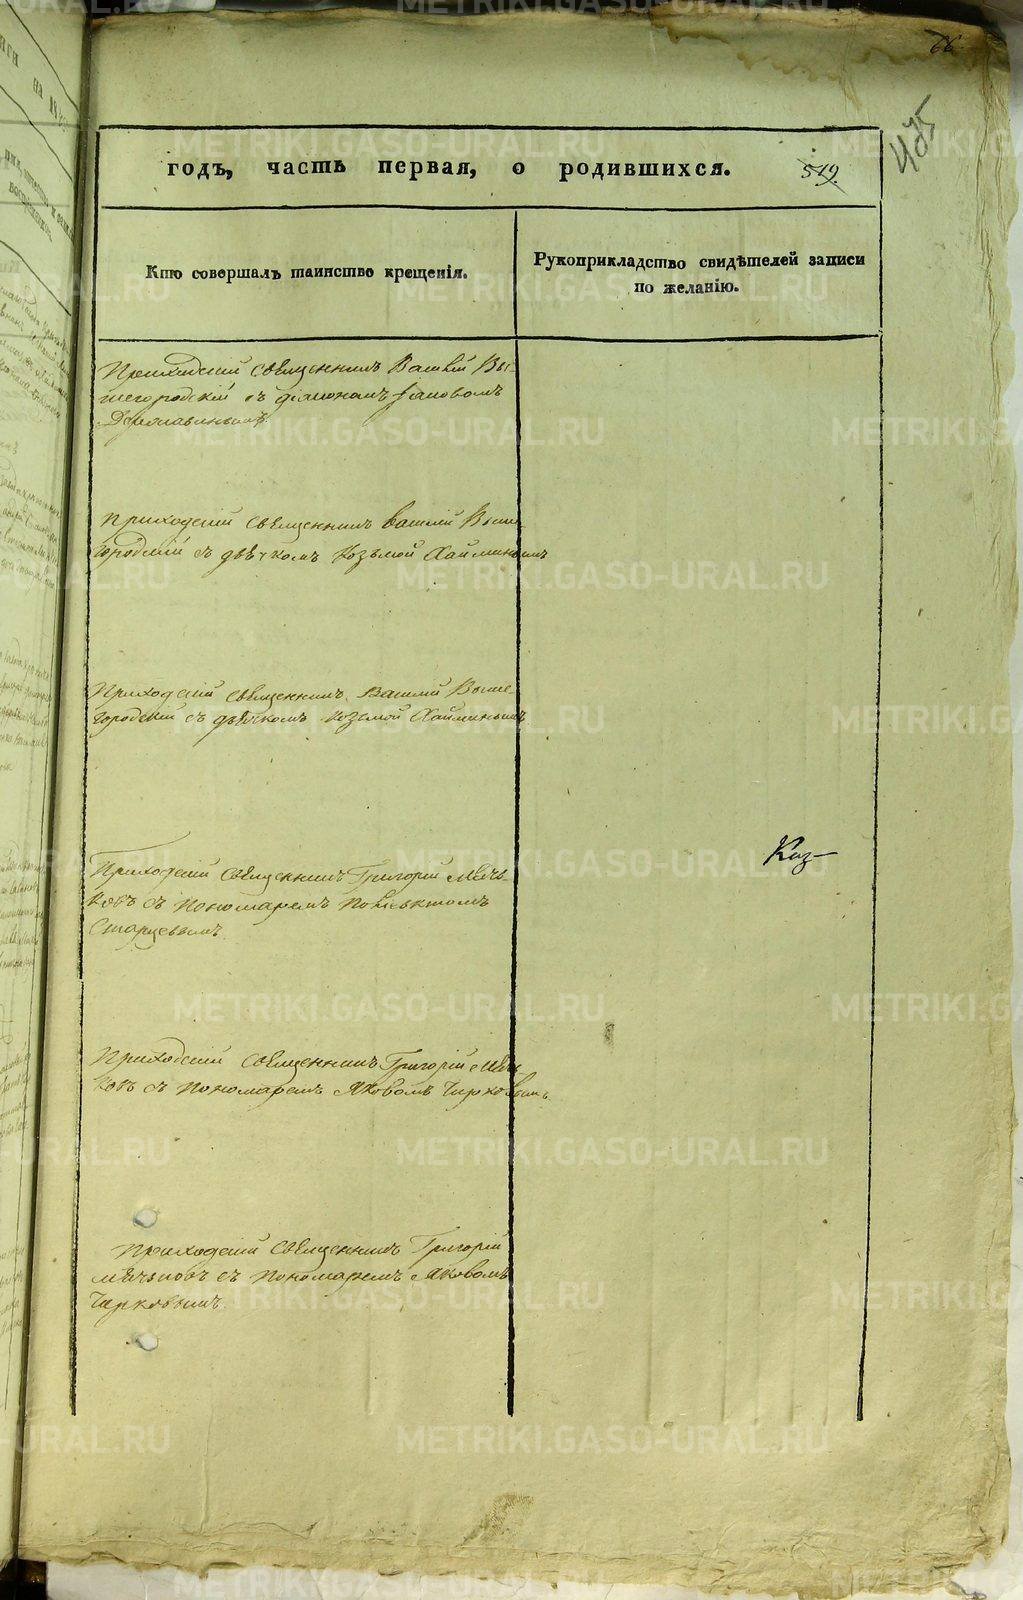 66
485
годъ, часть первая, о родившихся. 519.
Кто совершалъ таинство крещенія.
Рукоприкладство свидѣтелей записи
по желанію.
Приходскій священникъ Василій Вы-
шегородскій съ діакономъ Іаковомъ
Державинымъ
Приходскій священникъ Василій Выше
городскій съ дьячкомъ Козьмой Хайминымъ
Приходскій священникъ Василій Выше
городскій съ дьячкомъ Козьмой Хайминымъ
Приходскій священникъ Григорій Мячь-
ковъ съ пономаремъ Поліевктомъ
Старцевымъ
Каз
Приходскій священникъ Григорій Мячь
ковъ съ пономаремъ Яковомъ Чирковымъ
Приходскій священникъ Григорій
Мячьковъ съ пономаремъ Яковомъ
Чирковымъ
METRIKI.GASO-URAL.RU